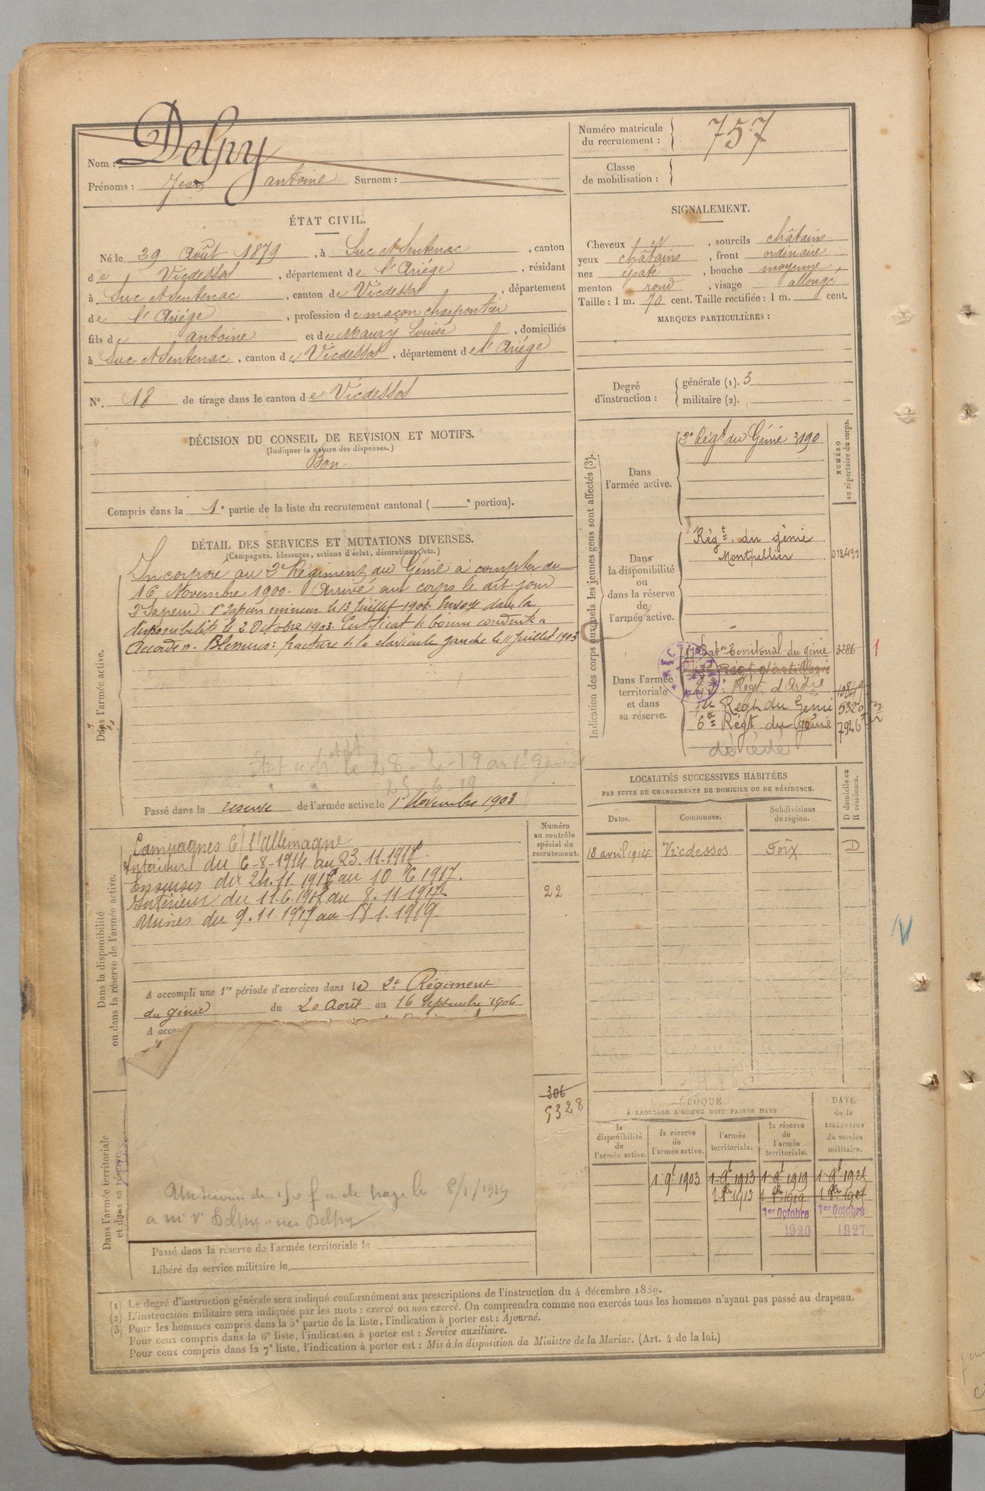 Nom : Delpy
Prénoms : Jean antoine Surnom :
Numéro matricule du recrutement : 757
Classe de mobilisation :
ÉTAT CIVIL.
Né le 29 Août 1879, à Suc et Sentenac, canton
de Vicdessos, département de l'Ariége, résidant
à Suc et Sentenac, canton de Vicdessos, département
de l'Ariége, profession de maçon charpentier
fils de antoine et de Maury Louise, domiciliés
à Suc et Sentenac, canton de Vicdessos, département de l'Ariége
N°. 18 de tirage dans le canton de Vicdessos
SIGNALEMENT.
Cheveux et, sourcils châtains
yeux châtains, front ordinaire
nez épaté, bouche moyenne,
menton rond, visage allongé
Taille : 1 m. 70 cent. Taille rectifiée : 1 m. cent.
MARQUES PARTICULIÈRES :
Degré d'instruction : générale (1). 3
militaire (2).
DÉCISION DU CONSEIL DE REVISION ET MOTIFS.
(Indiquer la nature des dispenses.)
Bon
Compris dans la 1e partie de la liste du recrutement cantonal ( e portion).
DÉTAIL DES SERVICES ET MUTATIONS DIVERSES.
(Campagnes, blessures, actions d'éclat, décorations, etc.)
Dans l'armée active.
Incorporé au 2e Régiment du Génie à compter du
16 Novembre 1900. Arrivé au corps le dit jour
2e Sapeur. 1er Sapeur mineur le 13 Juillet Envoyé dans la
disponibilité le 3 Octobre 1903. Certificat de bonne conduite
accordé. Blessures : fracture de la clavicule gauche le 11 Juillet 1903
28-2-19 au 1er génie
Passé dans la réserve de l'armée active le 1er Novembre 1903
Indication des corps auxquels les jeunes gens sont affectés (3).
NUMÉRO au répertoire du corps.
Dans l'armée active.
2e Régt du Génie 3190
Dans la disponibilité ou dans la réserve de l'armée active.
Régt. du génie
Montpellier
Dans l'armée territoriale et dans sa réserve.
Batn territorial du génie 3286
1
Régt d'Artie
Régt du Génie 5320
6e Régt du Génie 7926
décédé
LOCALITÉS SUCCESSIVES HABITÉES
PAR SUITE DE CHANGEMENTS DE DOMICILE OU DE RÉSIDENCE.
Dates. Communes. Subdivisions de région. D domicile ou R résidence.
18 avril 1914 Vicdessos Foix D
Dans la disponibilité ou dans la réserve de l'armée active.
Numéro au contrôle spécial du recrutement.
22
Campagnes Ct l'Allemagne
Intérieur du 6-8-1914 au 23.11.1916
du 24.11.1916 au 10 6 1917.
Intérieur du 11.6.1917 au 8.11.1917
Usines du 9.11.1917 au 18.1.1919
A accompli une 1re période d'exercices dans le 2e Régiment
du génie du 20 Août au 16 Septembre 1906
A acco
306
5328
Dans l'armée territoriale et dans sa réserve.
8/1/1919
a Mme Ve Delpy née Delpy
Passé dans la réserve de l'armée territoriale le
Libéré du service militaire le
ÉPOQUE
À LAQUELLE L'HOMME DOIT PASSER DANS
DATE de la LIBÉRATION du service militaire.
la disponibilité de l'armée active.
la réserve de l'armée active.
l'armée territoriale.
la réserve de l'armée territoriale.
1 9e 1903 1 9e 1913 1 9e 1919
1919
1er Octobre 1920
1er Octobre 1927
(1) Le degré d'instruction générale sera indiqué conformément aux prescriptions de l'instruction du 4 décembre 1889.
(2) L'instruction militaire sera indiquée par les mots : exercé ou non exercé. On comprendra comme non exercés tous les hommes n'ayant pas passé au drapeau.
(3) Pour les hommes compris dans la 5e partie de la liste, l'indication à porter est : Ajourné.
Pour ceux compris dans la 6e liste, l'indication à porter est : Service auxiliaire.
Pour ceux compris dans la 7e liste, l'indication à porter est : Mis à la disposition du Ministre de la Marine. (Art. 4 de la loi.)